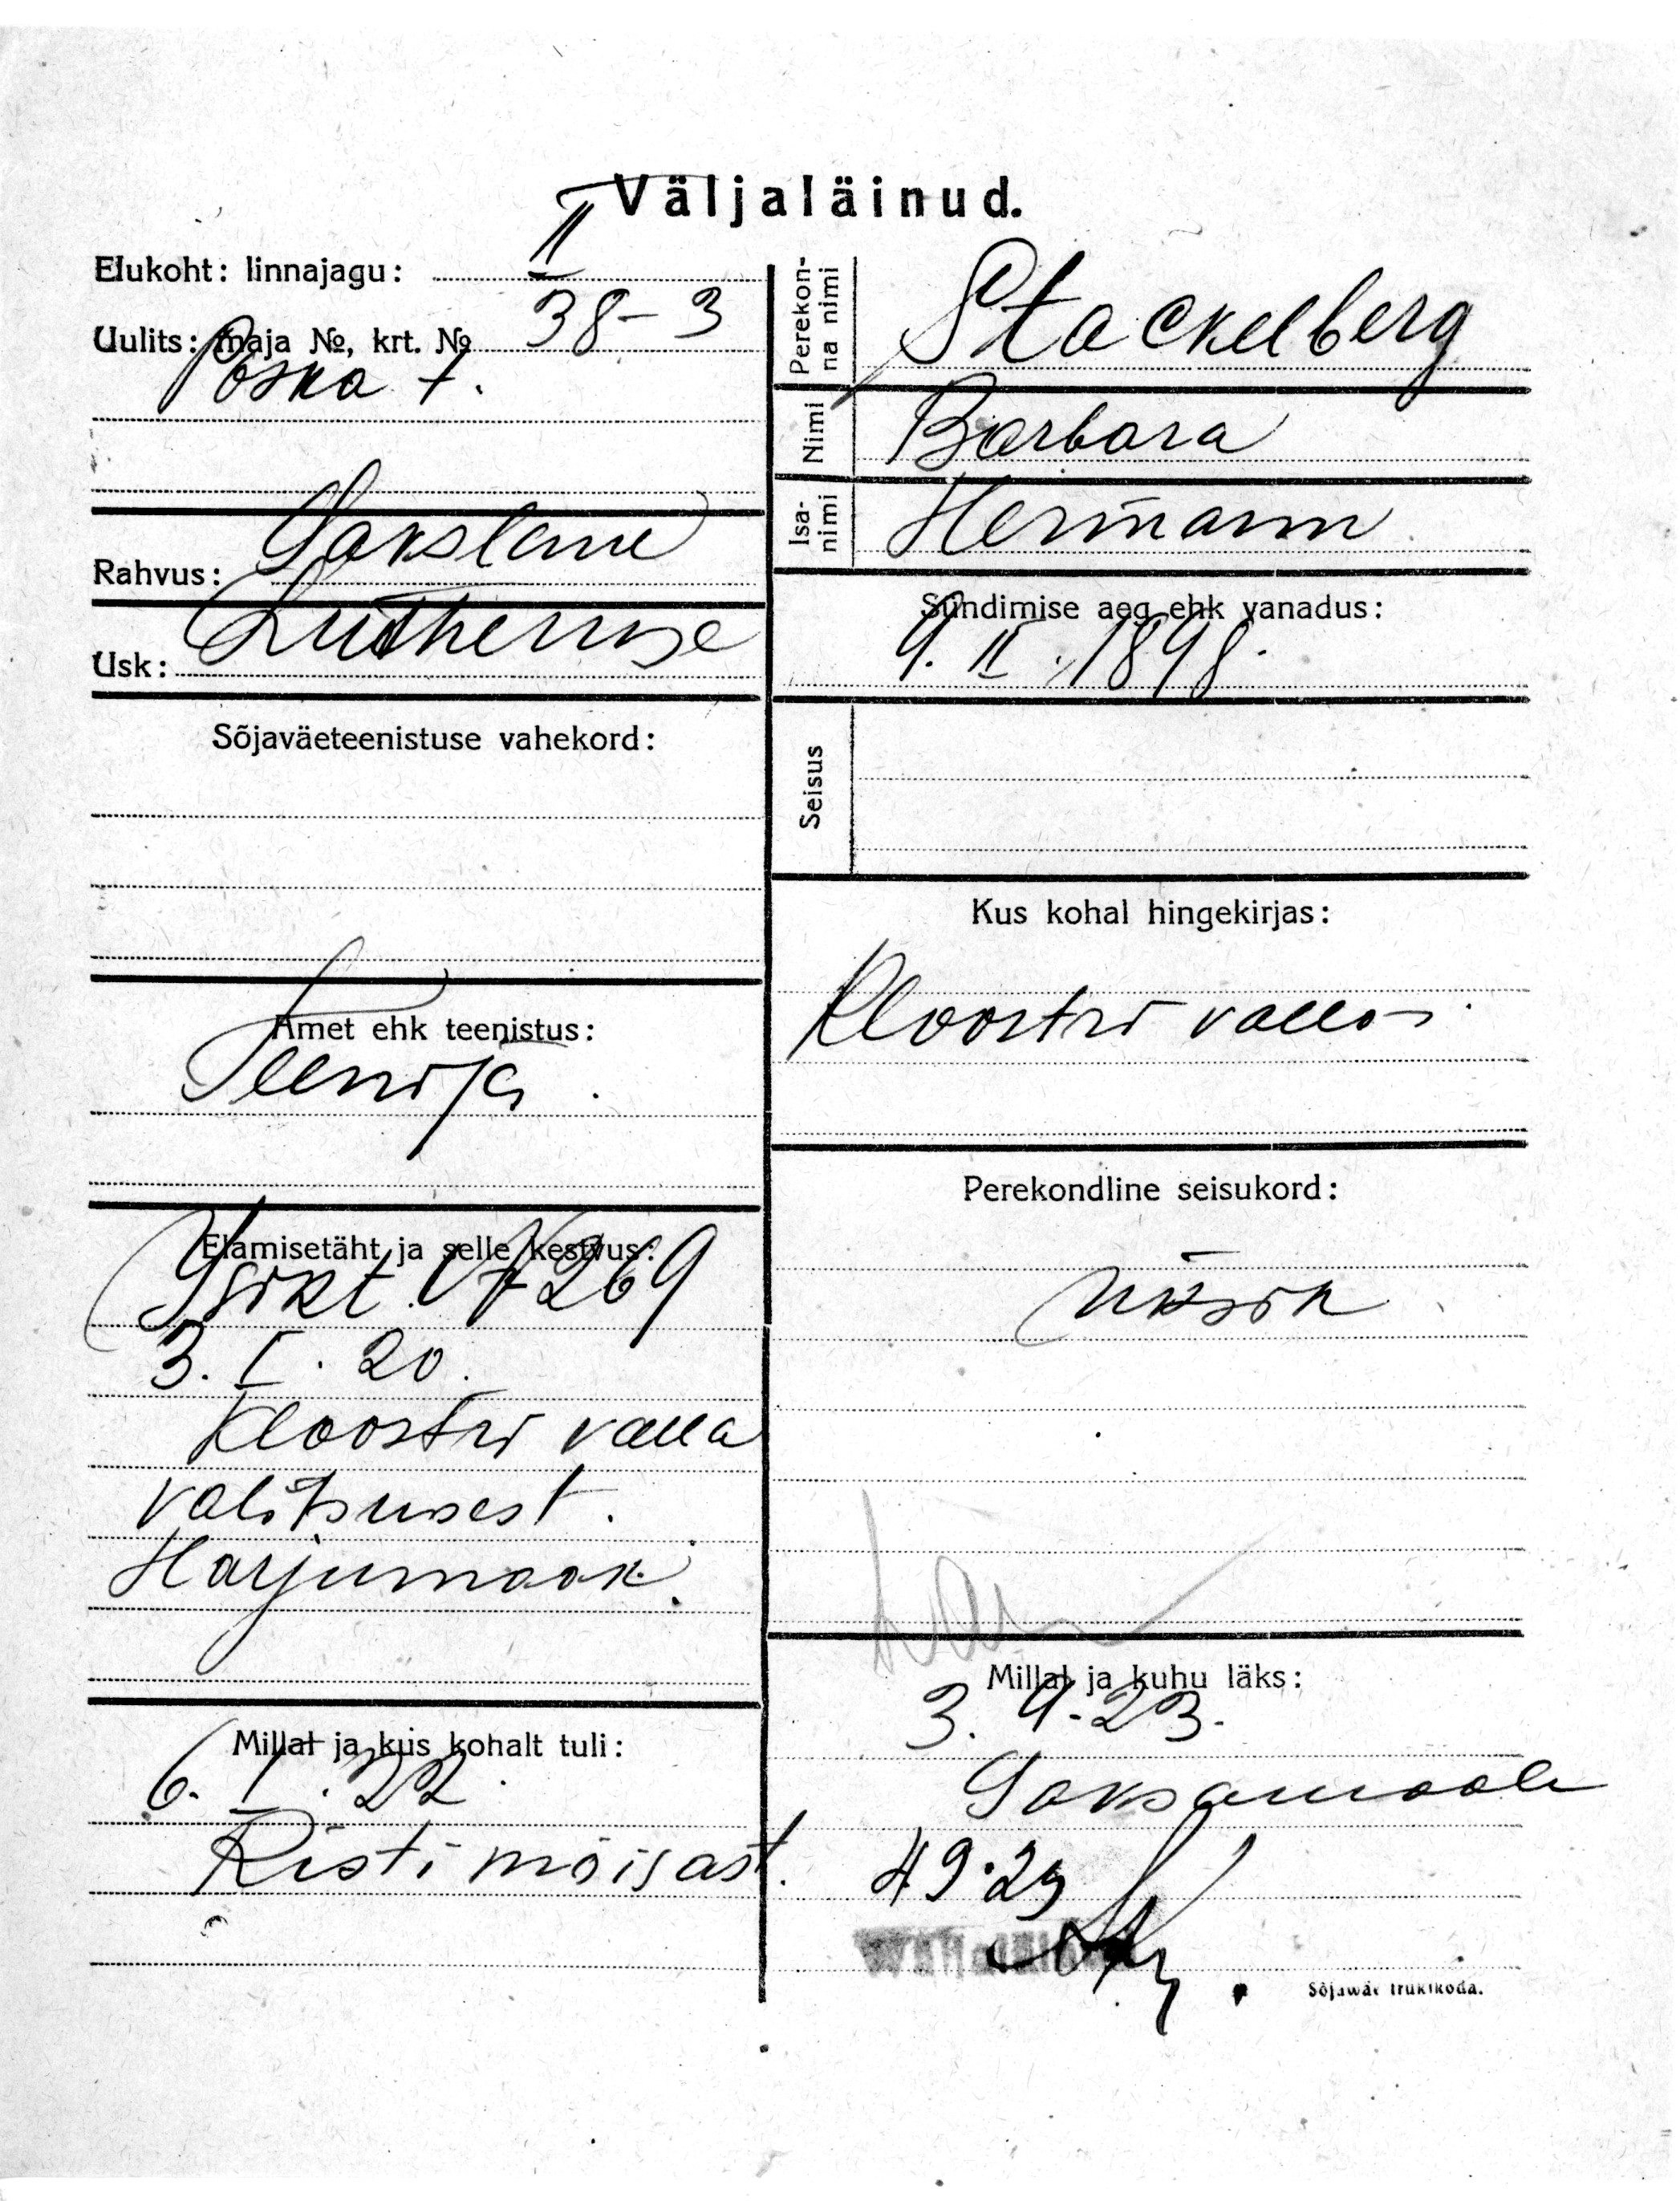 Väljaläinud.
Elukoht: linnajagu: II
Uulits: maja №, krt. № 38-3
Poska t.
Rahvus: Sakslane
Usk: Lutheruse
Sõjaväeteenistuse vahekord:
Amet ehk teenistus:
Teenija.
Elamisetäht ja selle kestvus:
Isikt. 269
3. I. 20.
Kloostri valla
valitsusest.
Harjumaak.
Millal ja kus kohalt tuli:
6. I. 22.
Risti mõisast.
Perekonna nimi
Stackelberg
Nimi
Barbara
Isanimi
Hermann
Sündimise aeg ehk vanadus:
9. II. 1898.
Seisus
Kus kohal hingekirjas:
Kloostri vallas.
Perekondline seisukord:
üksik
Millal ja kuhu läks:
3. 9. 23.
Saksamaale
4 9. 23
Sõjawäe trükikoda.